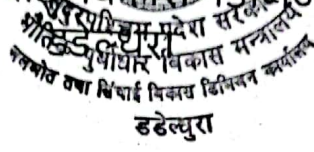 सुदुरपश्चिम प्रदेश सरकार
भौतिक पूर्वाधार विकास मन्त्रालय
जलस्रोत तथा सिंचाई विकास डिभिजन कार्यालय
डडेल्धुरा